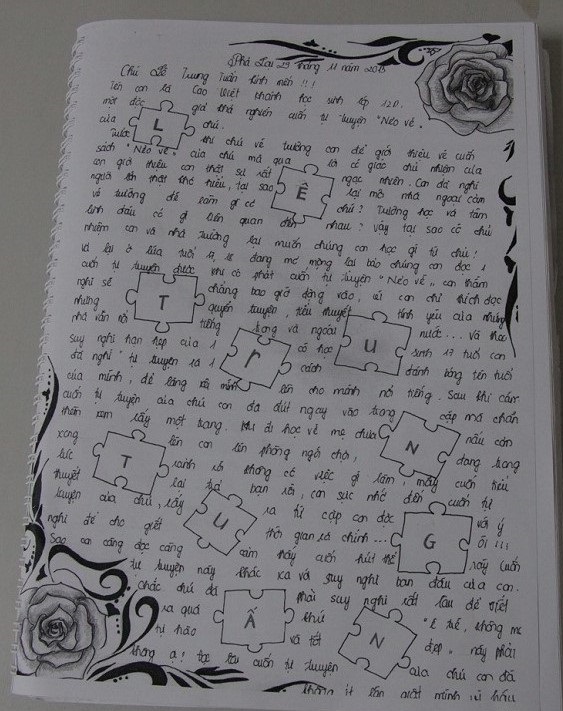 Phả Lại 29 tháng 11 năm 2013
Chú Lê Trung Tuấn kính mến !!!
Tên con là Cao Viết Thanh học sinh lớp 12D.
một độc giả khá nghiền cuốn tự truyện "Nẻo về"
của L chú.
Trước khi chú về trường con để giới thiệu về cuốn
sách "Nẻo về" của chú mà qua lời cô giáo chủ nhiệm của
con giới thiệu con thật sự rất Ê ngạc nhiên. Con đã nghĩ
người lớn thật khó hiểu, tại sao lại mời nhà ngoại cảm
về trường để làm gì cơ chứ? Trường học và tâm
linh đâu có gì liên quan đến nhau? vậy tại sao cô chủ
nhiệm con và nhà trường lại muốn chúng con học gì từ chú!
và lại ở lứa tuổi đang mơ mộng lại bảo chúng con đọc 1
cuốn tự truyện được khi cô phát cuốn tự truyện "Nẻo về" con thầm
nghĩ sẽ T chẳng bao giờ động vào, vì con chỉ thích đọc
những quyển truyện, tiểu thuyết tình yêu của những
nhà văn nổi tiếng trong và ngoài u nước... và theo
suy nghĩ hạn hẹp của 1 r cô học sinh 17 tuổi con
đã nghĩ "tự truyện là 1 cách đánh bóng tên tuổi
của mình, để lăng xê mình lên cho mình nổi tiếng. Sau khi cầm
cuốn tự truyện của chú con đã đút ngay vào trong cặp mà chẳn
thèm xem lấy một trang. Khi đi học về mẹ chưa N nấu cơm
xong T lên con lên phòng ngồi chơi, đang trong
lúc rảnh rỗi không có việc gì làm, mấy cuốn tiểu
thuyết lại trả bạn rồi, con sực nhớ đến cuốn tự
truyện của chú, lấy u ra từ cặp con đọc G với ý
nghĩ để cho giết thời gian là chính... ôi !!!
Sao con càng đọc càng cảm thấy cuốn hút thế này cuốn
tự truyện này khác xa với suy nghĩ ban đầu của con.
Chắc chú đã phải suy nghĩ rất lâu để viết
ra quá Ấ khứ N "ê chề, không mấy
tự hào và tốt đẹp" này phải
không ạ! đọc cuốn tự truyện của chú con đã
không ít lần giật mình